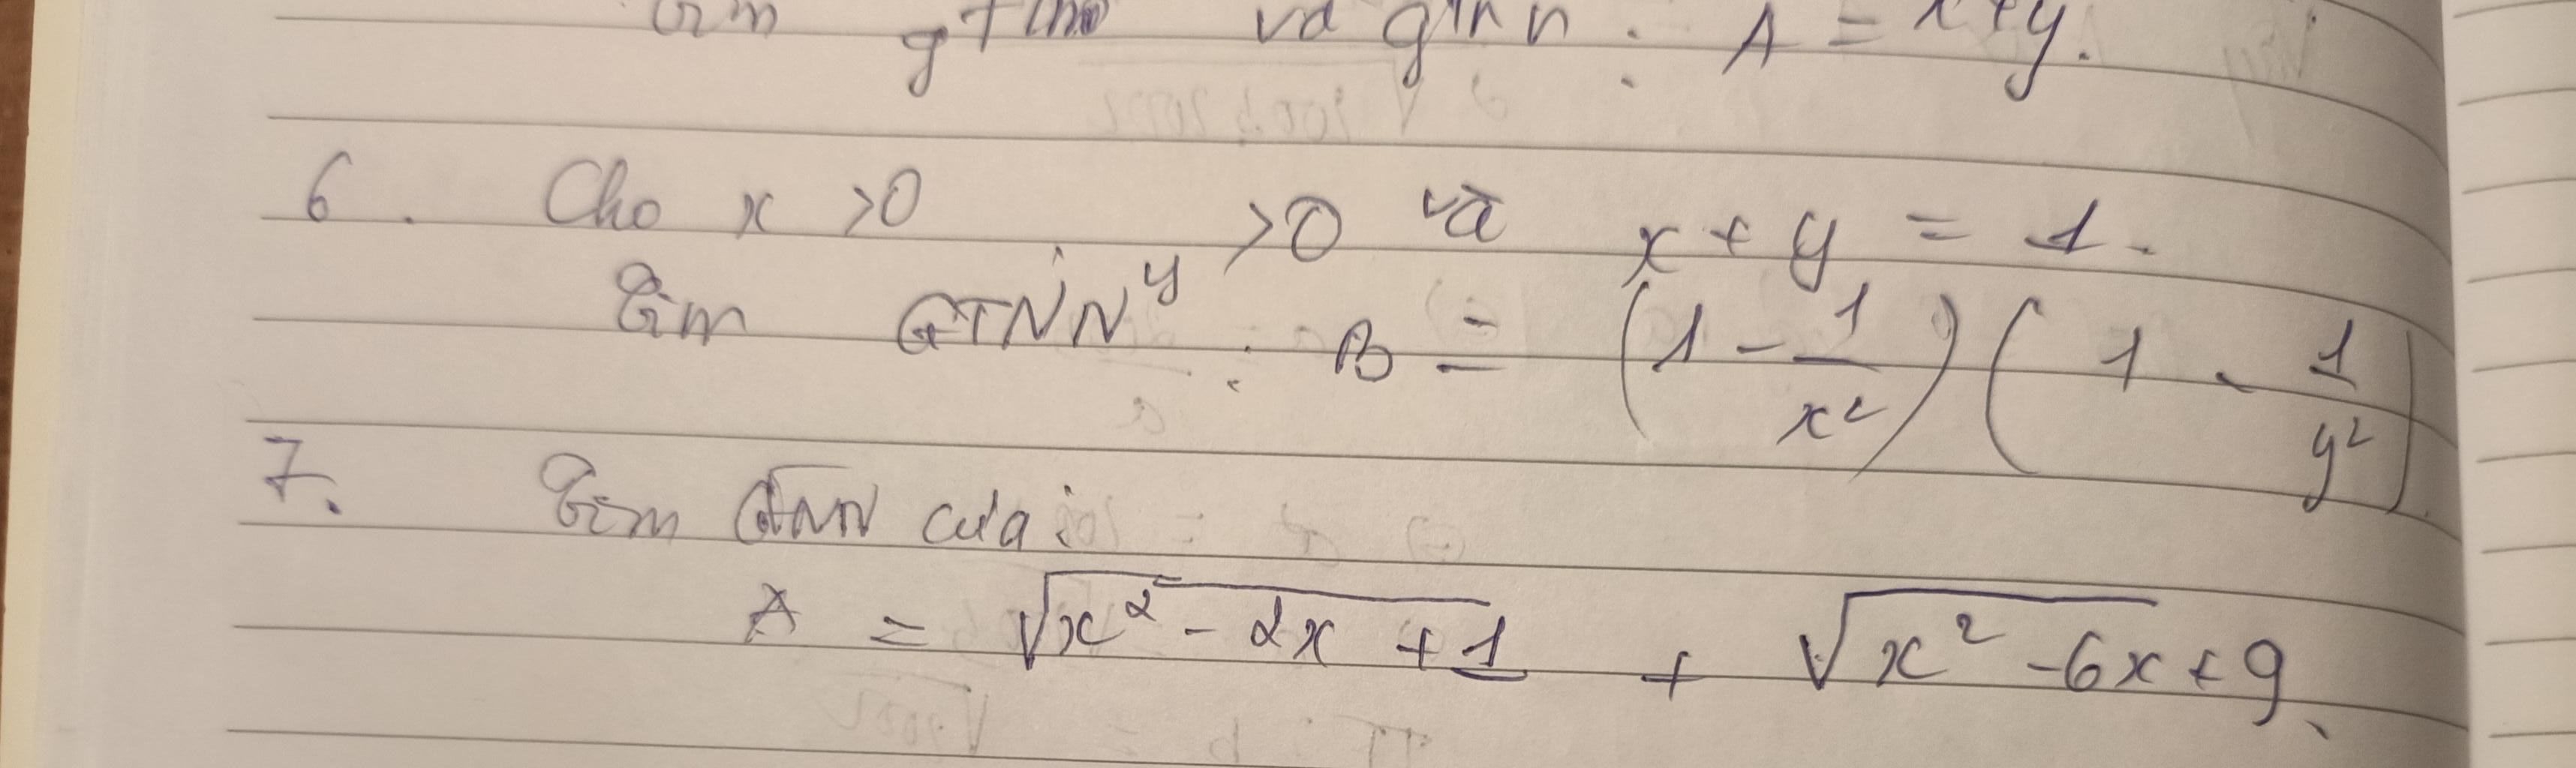 Tìm gtln và gtnn : A = x+y.
6. Cho x >0 y >0 và x + y = 1.
Tìm GTNN : B = (1 - 1/x²) (1 - 1/y²)
7. Tìm GTNN của :
A = √(x² - 2x + 1) + √(x² - 6x + 9)